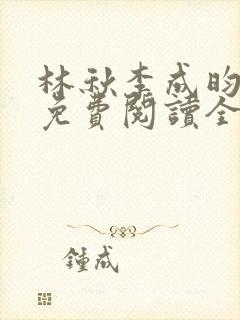 林秋李成昀
免費閱讀全
鍾成